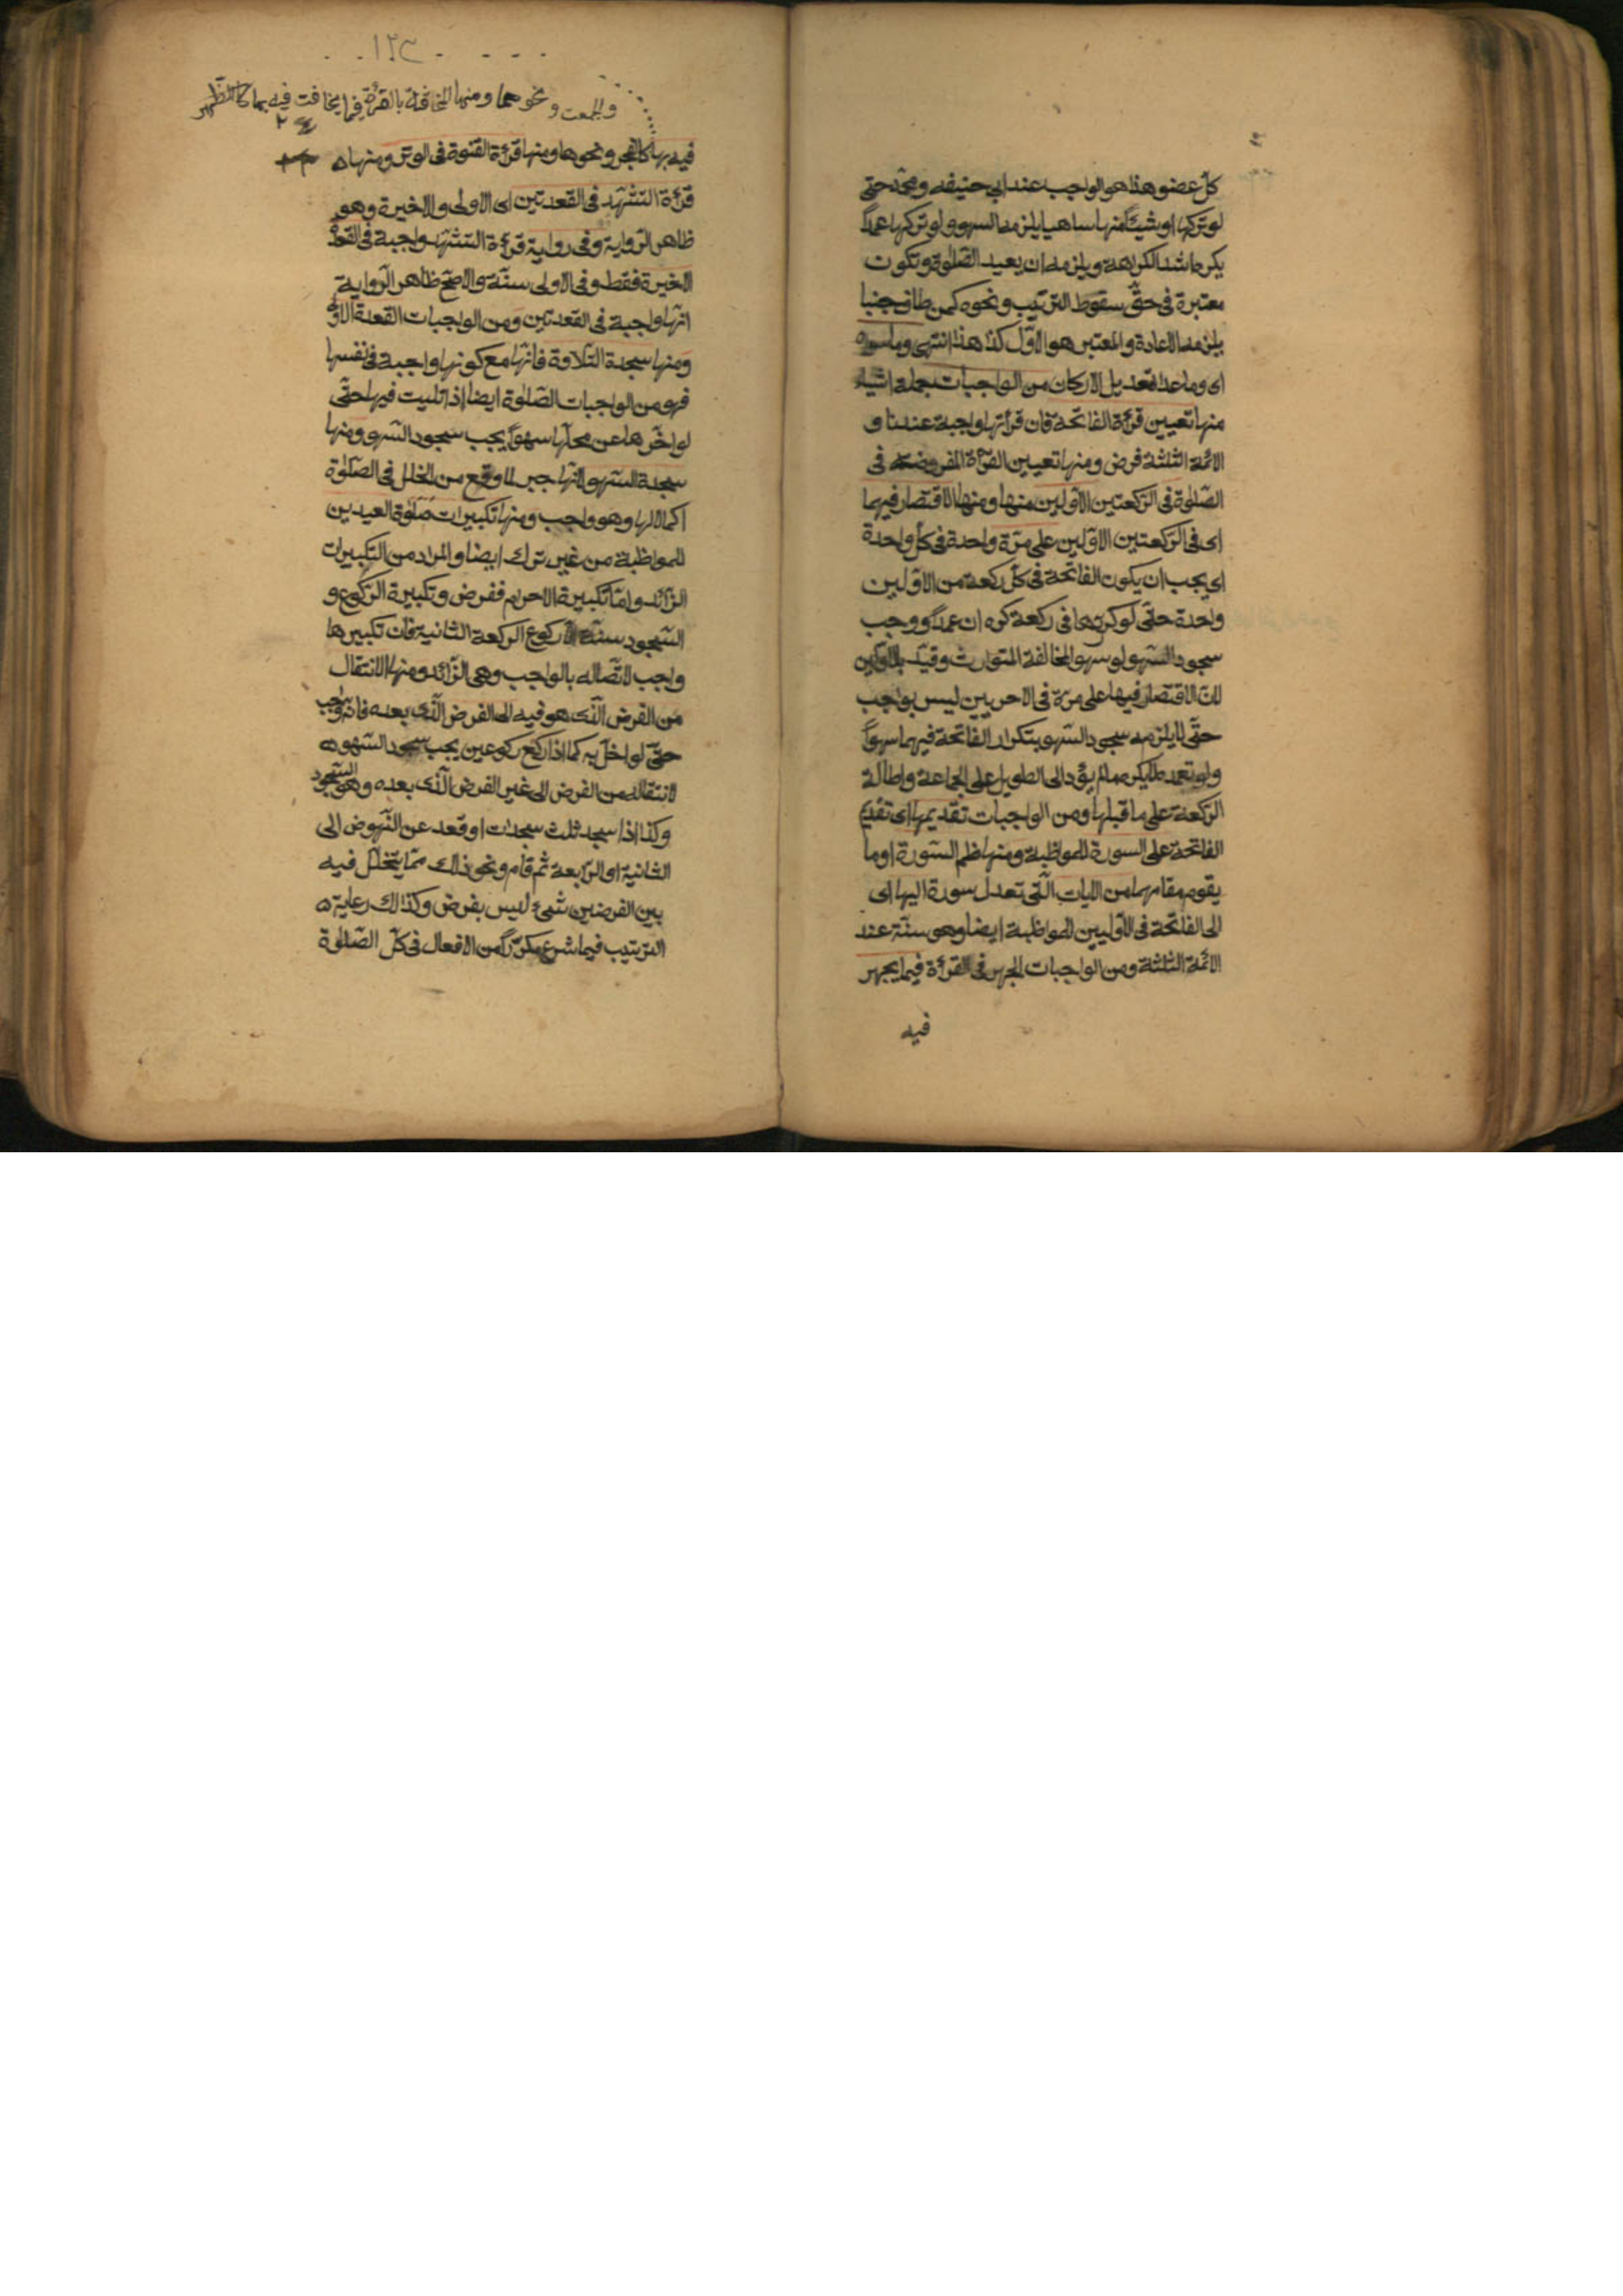 كل عضو هذا هو الواجب عند ابي حنيفه ومحمد حتى
لو تركها او شيئا منها ساهيا يلزمه السهو ولو تركها عمداً
يكره اشد الكراهة ويلزمه ان يعيد الصّلوة وتكون
معتبرة فى حقّ سقوط الترتيب ونحوه كمن طاف جنبا
يلزمه الاعادة والمعتبر هو الاوّل كذا هذا انتهى وما سواه
اى وما عدا تعديل الاركان من الواجبات بجملة اشياء
منها تعيين قراءة الفاتحة فان قرأتها واجبة عندنا و
الائمة الثلثة فرض ومنها تعيين القرأة المفروضة فى
الصّلوة فى الرّكعتين الاوّليين منها ومنها الاقتصار فيهما
اى فى الرّكعتين الاوّلين على مرّة واحدة فى كل واحدة
اى يجب ان يكون الفاتحة فى كلّ ركعة من الاوّلين
واحدة حتّى لو كرّرها فى ركعة كره ان عمداً ووجب
سجود السّهو لو سهوا لمخالفة المتوارث وقيّد بالاوّلين
لانّ الاقتصار فيها على مرّة فى الاخريين ليس بواجب
حتّى لا يلزمه سجود السّهو بتكرار الفاتحة فيهما سهواً
ولو تعمد لا يكره ما لم يؤد الى الطويل على الجماعة واطالة
الرّكعة على ما قبلها ومن الواجبات تقديمها اى تقديم
الفاتحة على السورة للمواظبة ومنها ضم السّورة او ما
يقوم مقامها من الايات الّتى تعدل سورة اليها اى
الى الفاتحة فى الاوّليين للمواظبة ايضا وهى سنّة عند
الائمّة الثلثة ومن الواجبات الجهر فى القرأة فيما يجهر
فيه
١٢٣
والجمعت ونحوهما ومنها المخافتة بالقرأة فيما يخافت فيه بها كالظهر
فيه بها كالفجر ونحوها ومنها قرأة القنوة فى الوتر ومنها
قرءة التشهّد فى القعدتين اى الاولى والاخيرة وهو
ظاهر الرّواية وفى رواية قرءة التشهّد واجبة فى القعدة
الاخيرة فقط وفى الاولى سنّة والاصحّ ظاهر الرّواية
انّها واجبة فى القعدتين ومن الواجبات القعدة الاولى
ومنها سجدة التّلاوة فانّها مع كونها واجبة فى نفسها
فهو من الواجبات الصّلوة ايضا اذا تليت فيها حتّى
لو اخّرها عن محلّها سهواً يجب سجود السّهو ومنها
سجدة السّهو لانّها جبر لما وقع من الخلل فى الصّلوة
اكمالا لها وهو واجب ومنها تكبيرات صلوة العيدين
للمواظبة من غير ترك ايضا والمراد من التّكبيرات
الزّائد وامّا تكبيرة الاحرام ففرض وتكبيرة الرّكوع و
السّجود سنّة الّا ركوع الركعة الثانية فان تكبيرها
واجب لاتّصاله بالواجب وهى الزّائد ومنها الانتقال
من الفرض الّذى هو فيه الى الفرض الّذى بعده فانه واجب
حتّى لو اخلّ به كما اذا ركع ركوعين يجب سجود السّهو
لانتقاله من الفرض الى غير الفرض الّذى بعده وهو السّجود
وكذا اذا سجد ثلث سجدات او قعد عن النّهوض الى
الثانية او الرّابعة ثمّ قام ونحو ذلك ممّا يتخلّل فيه
بين الفرضين شئ ليس بفرض وكذلك رعاية
الترتيب فيما شرع مكرّراً من الافعال فى كلّ الصّلوة